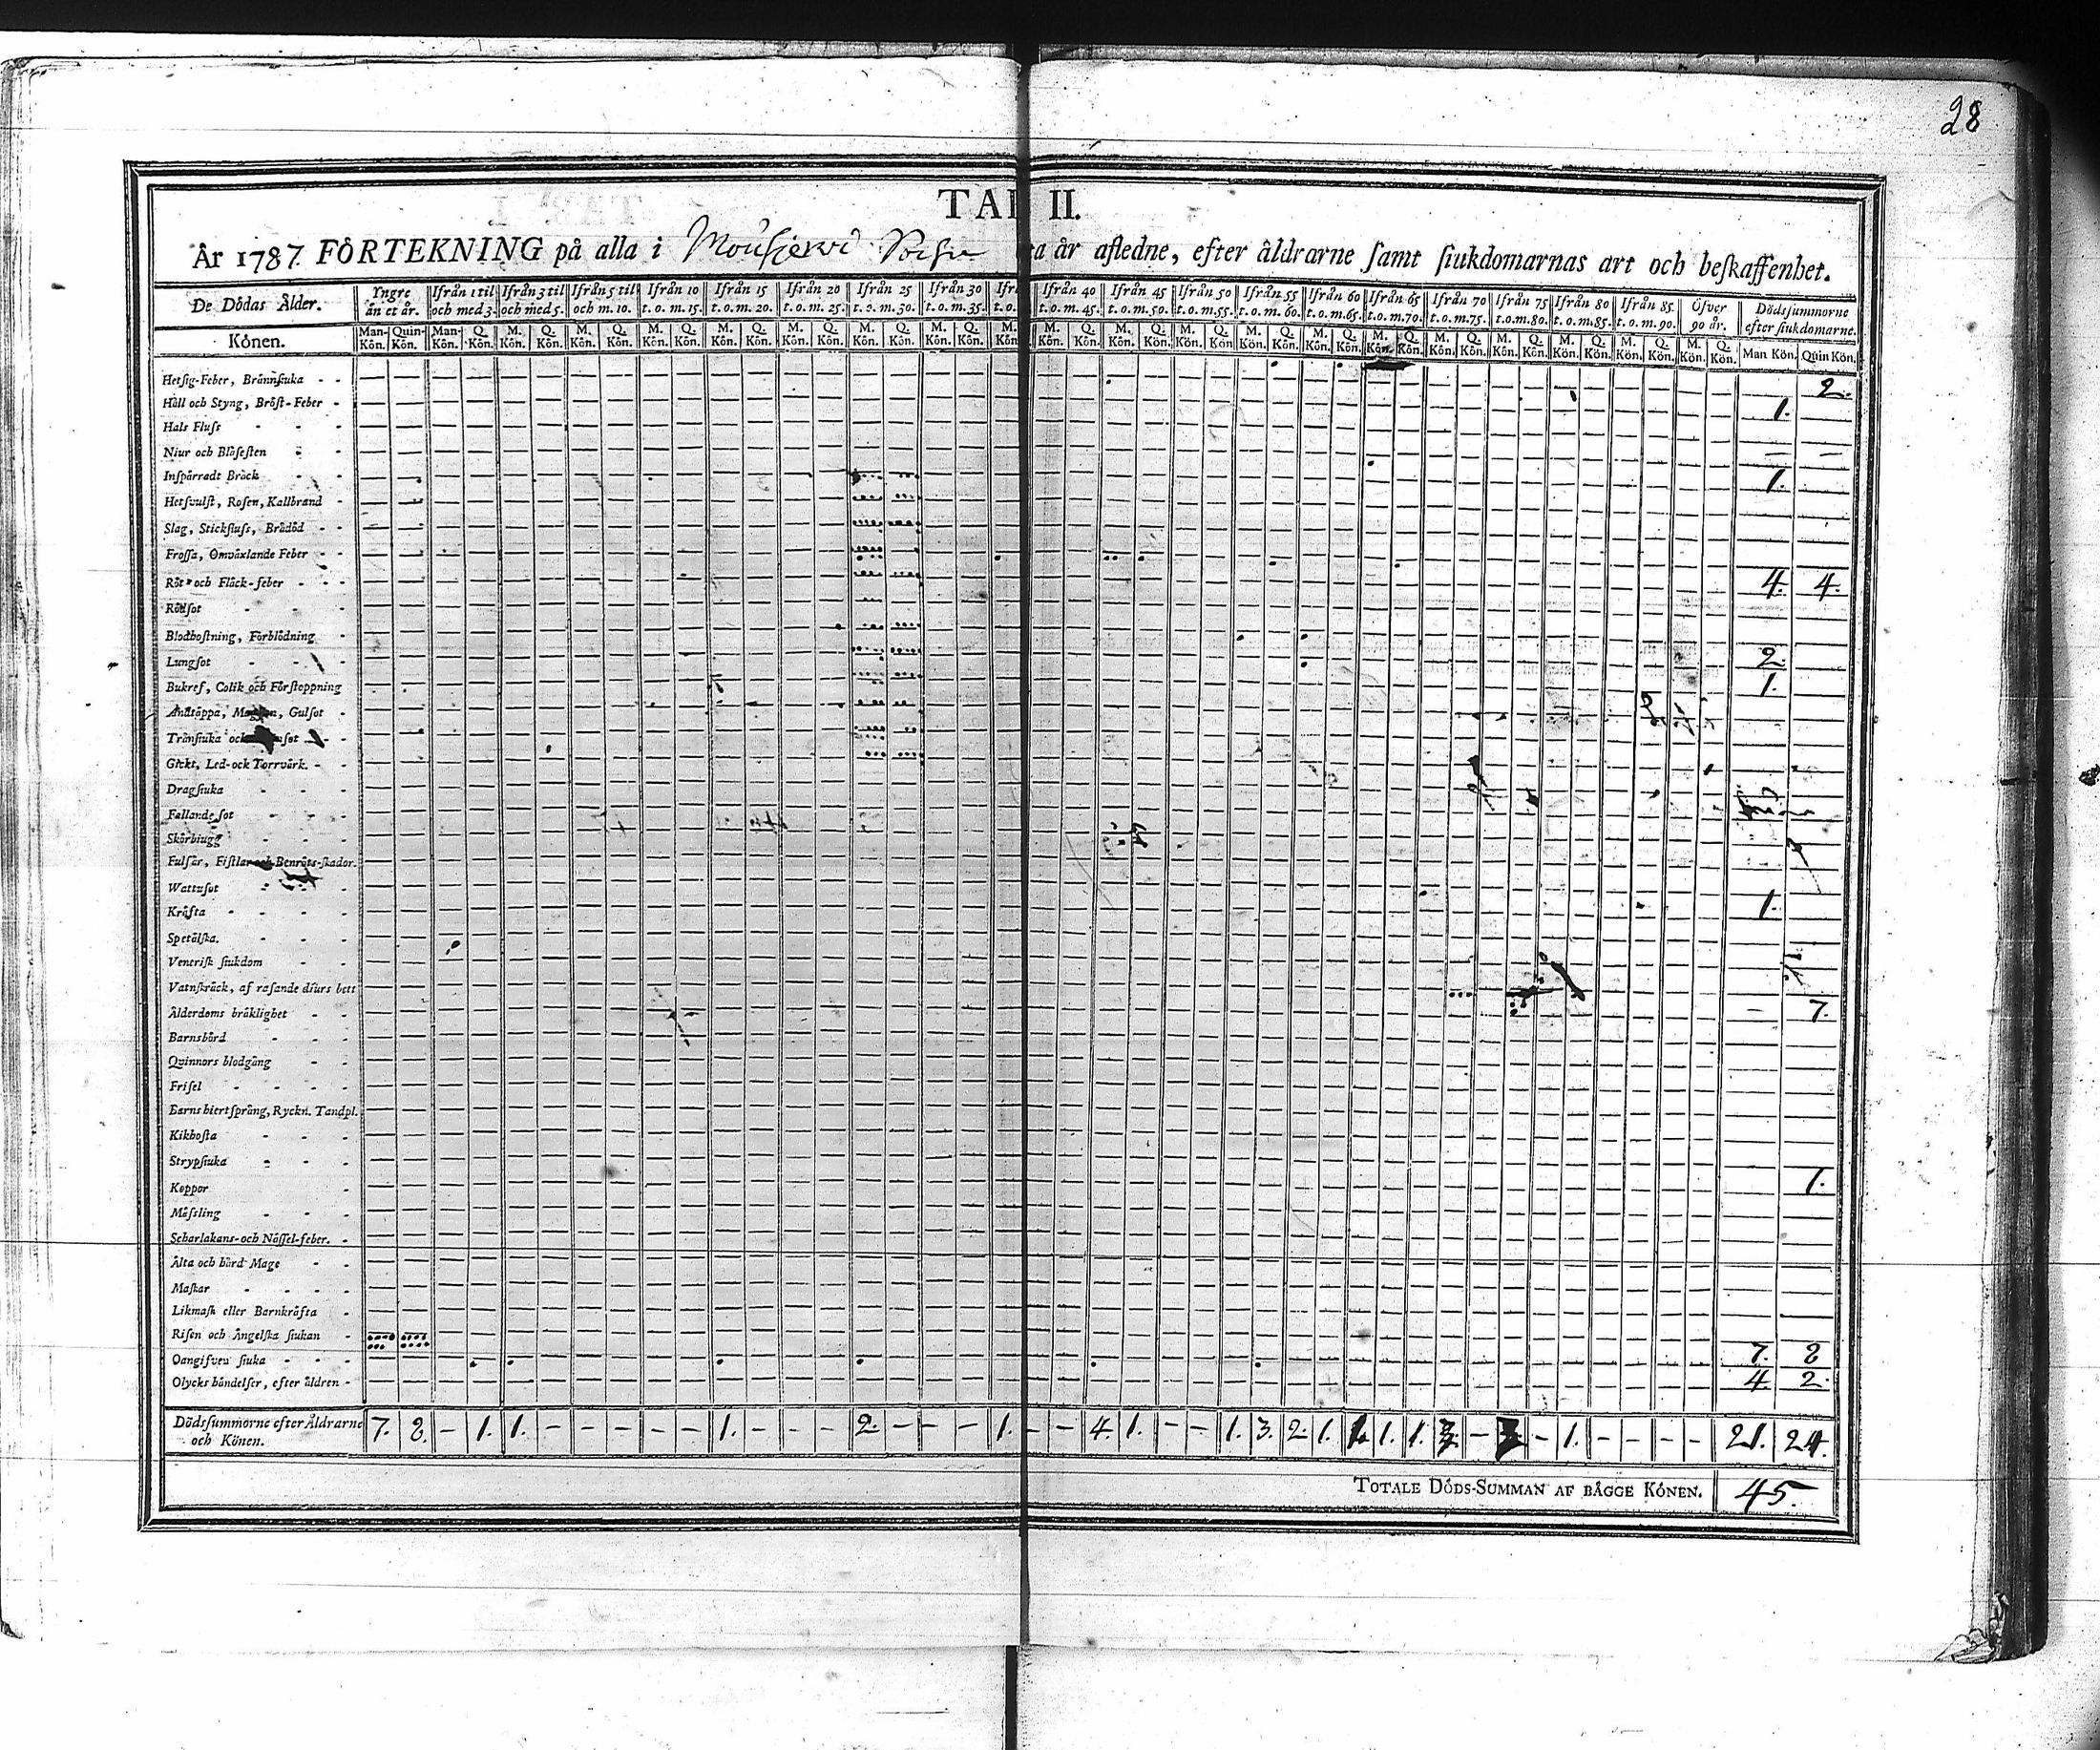 28
TAB II.
År 1787. FÖRTEKNING på alla i Mouhjerwi Sockn ta år afledne, efter åldrarne samt siukdomarnas art och beskaffenhet.
De Dödas Ålder. Yngre än et år. Ifrån 1 til och med 3. Ifrån 3 til och med 5. Ifrån 5 til och m. 10. Ifrån 10 t. o. m. 15. Ifrån 15 t. o. m. 20. Ifrån 20 t. o. m. 25. Ifrån 25 t. o. m. 30. Ifrån 30 t. o. m. 35. Ifrån 40 t. o. m. 45. Ifrån 45 t. o. m. 50. Ifrån 50 t. o. m. 55. Ifrån 55 t. o. m. 60. Ifrån 60 t. o. m. 65. Ifrån 65 t. o. m. 70. Ifrån 70 t. o. m. 75. Ifrån 75 t. o. m. 80. Ifrån 80 t. o. m. 85. Ifrån 85. t. o. m. 90. Öfver 90 år. Dödssummorne efter siukdomarne.
Könen. Man-Kön. Quin-Kön. Man-Kön. Q. Kön. M. Kön. Q. Kön. M. Kön. Q. Kön. M. Kön. Q. Kön. M. Kön. Q. Kön. M. Kön. Q. Kön. M. Kön. Q. Kön. M. Kön. Q. Kön. M. Kön. M. Kön. Q. Kön. M. Kön. Q. Kön. M. Kön. Q. Kön. M. Kön. Q. Kön. M. Kön. Q. Kön. M. Kön. Q. Kön. M. Kön. Q. Kön. M. Kön. Q. Kön. M. Kön. Q. Kön. M. Kön. Q. Kön. M. Kön. Q. Kön. Man Kön. Quin Kön.
Hetsig-Feber, Brännsiuka 2.
Håll och Styng, Bröst-Feber 1.
Hals Fluss
Niur och Blåsesten
Inspärradt Bråck 1.
Hetsvulst, Rosen, Kallbrand
Slag, Stickfluss, Brådöd
Frossa, Omväxlande Feber
Röt- och Fläck-feber 4. 4.
Rödsot
Blodhostning, Förblödning
Lungsot 2.
Bukref, Colik och Förstoppning 1.
Andtäppa, Gulsot
Tränsiuka och
Gickt, Led- och Torrvärk.
Dragsiuka
Fallande sot
Skörbiugg
Fulsår, Fistlar och Benröts-skador.
Wattusot
Kräfta 1.
Spetälska.
Venerisk siukdom
Vatnskräck, af rasande diurs bett
Ålderdoms bräklighet – 7.
Barnsbörd
Qvinnors blodgång
Frisel
Barns hiertsprång, Ryckn. Tandpl.
Kikhosta
Strypsiuka
Koppor 1.
Mässling
Scharlakans- och Nässel-feber.
Älta och hård Mage
Maskar
Likmask eller Barnkräfta
Risen och Ängelska siukan
Oangifven siuka 7. 8
Olycks händelser, efter åldren 4. 2.
Dödssummorne efter Åldrarne och Könen. 7. 8. – 1. 1. – – – – – 1. – – – 2. – – – 1. – – 4. 1. – – 1. 3. 2. 1. 1. 1. 1. – – 1. – – – – 21. 24.
TOTALE DÖDS-SUMMAN AF BÅGGE KÖNEN. 45.